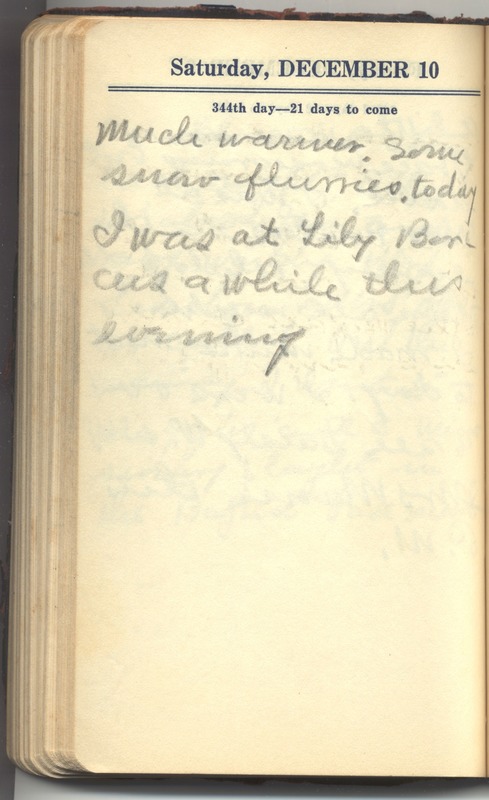 Saturday, DECEMBER 10
344th day—21 days to come
Much warmer. Some
snow flurries, today
I was at Lily Bon-
ces a while this
evening